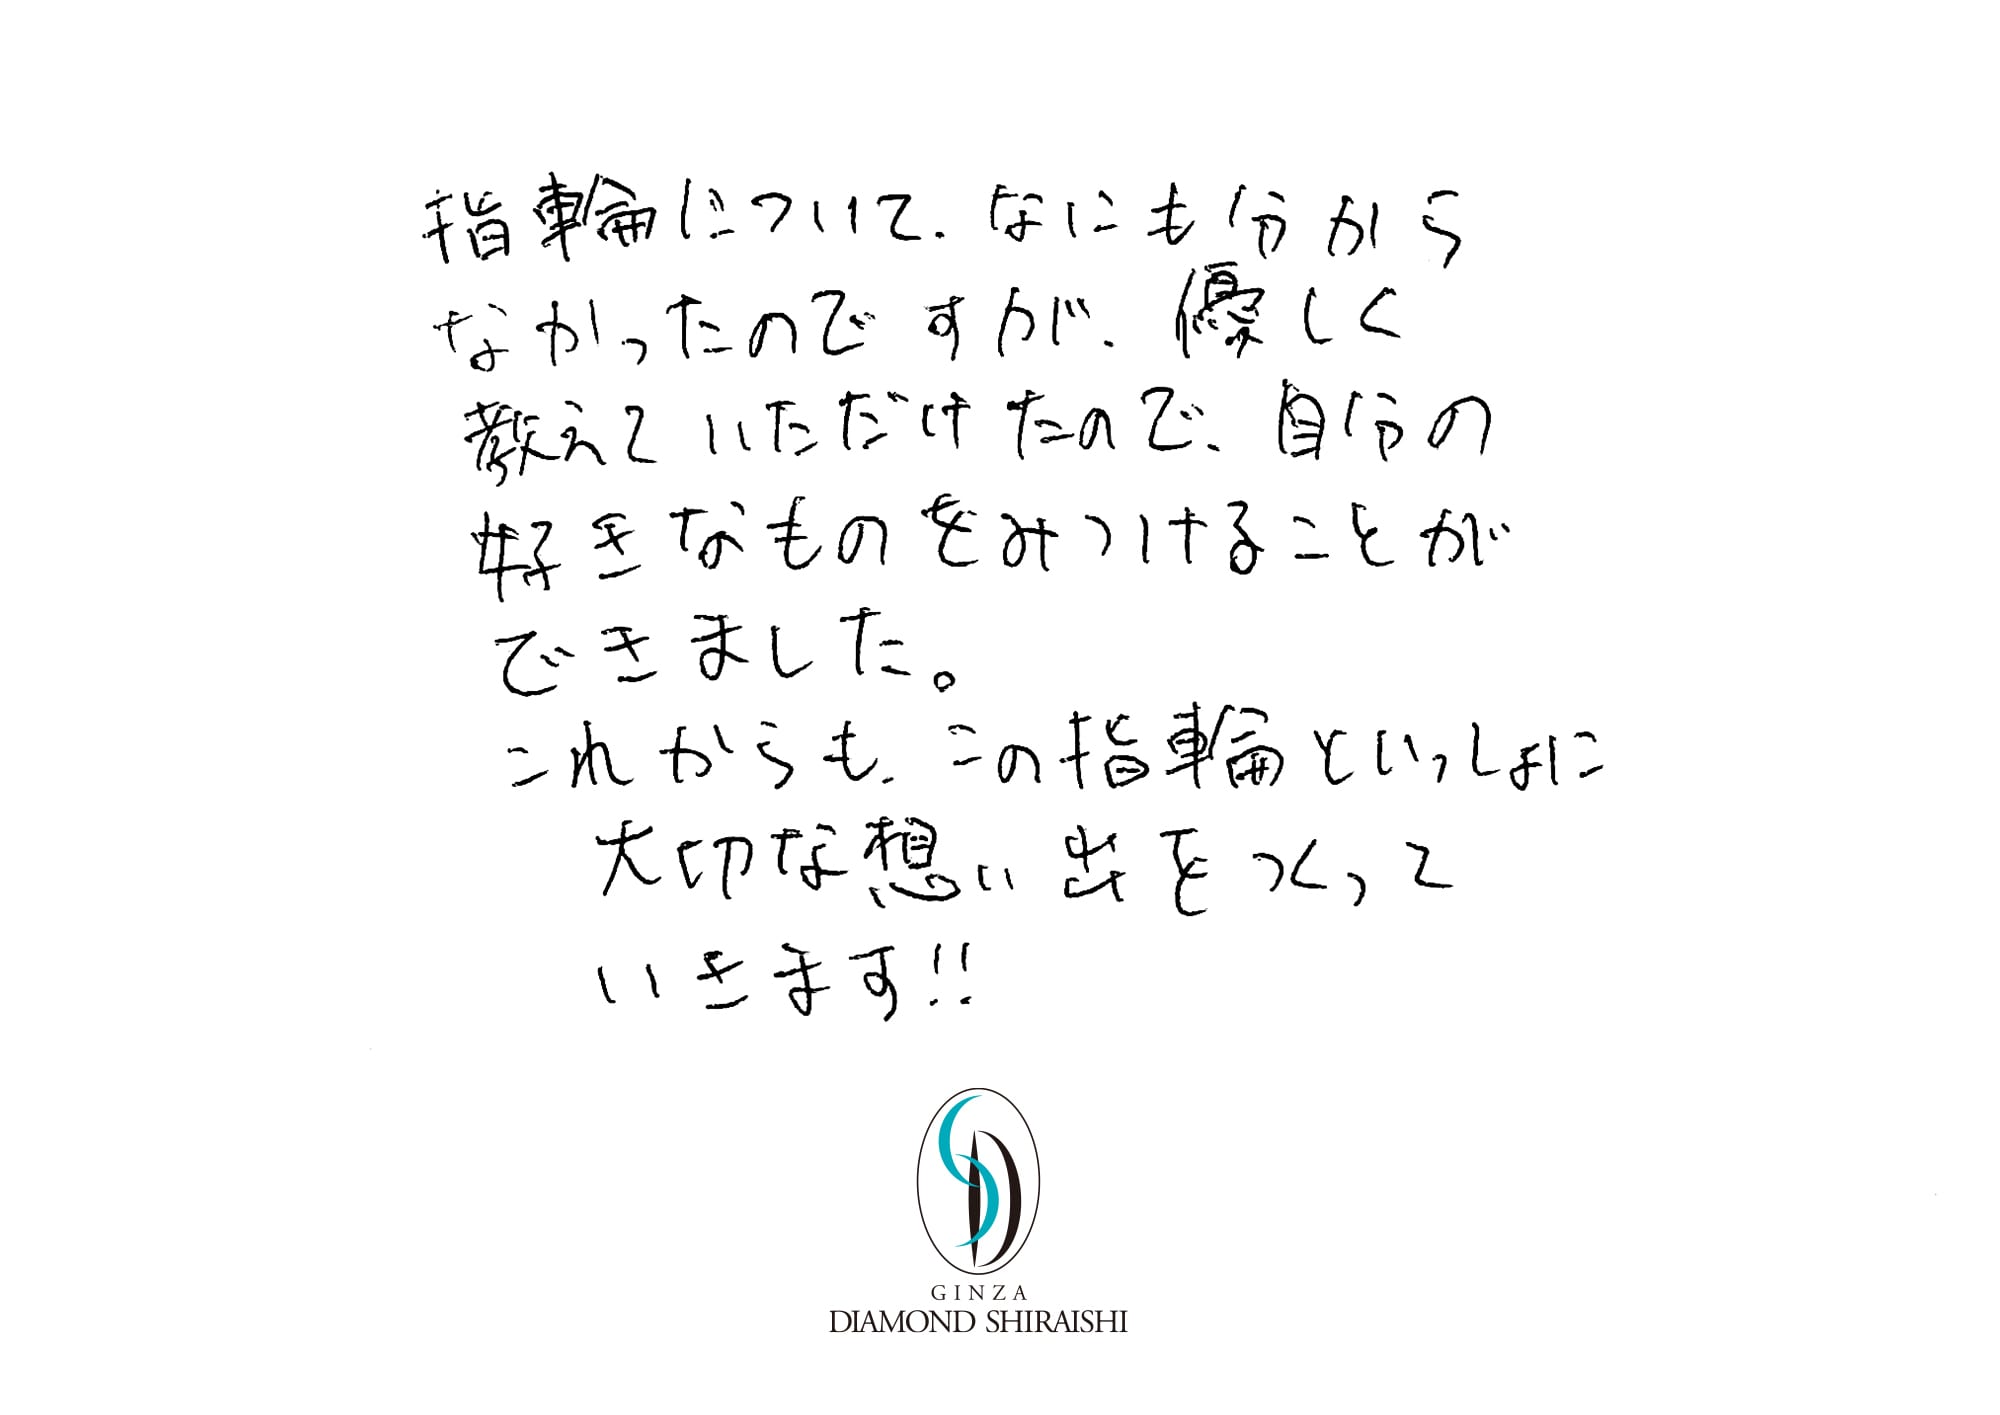 指輪について、なにも分から
なかったのですが、優しく
教えていただけたので、自分の
好きなものをみつけることが
できました。
これからも、この指輪といっしょに
大切な想い出をつくって
いきます!!
GINZA
DIAMOND SHIRAISHI